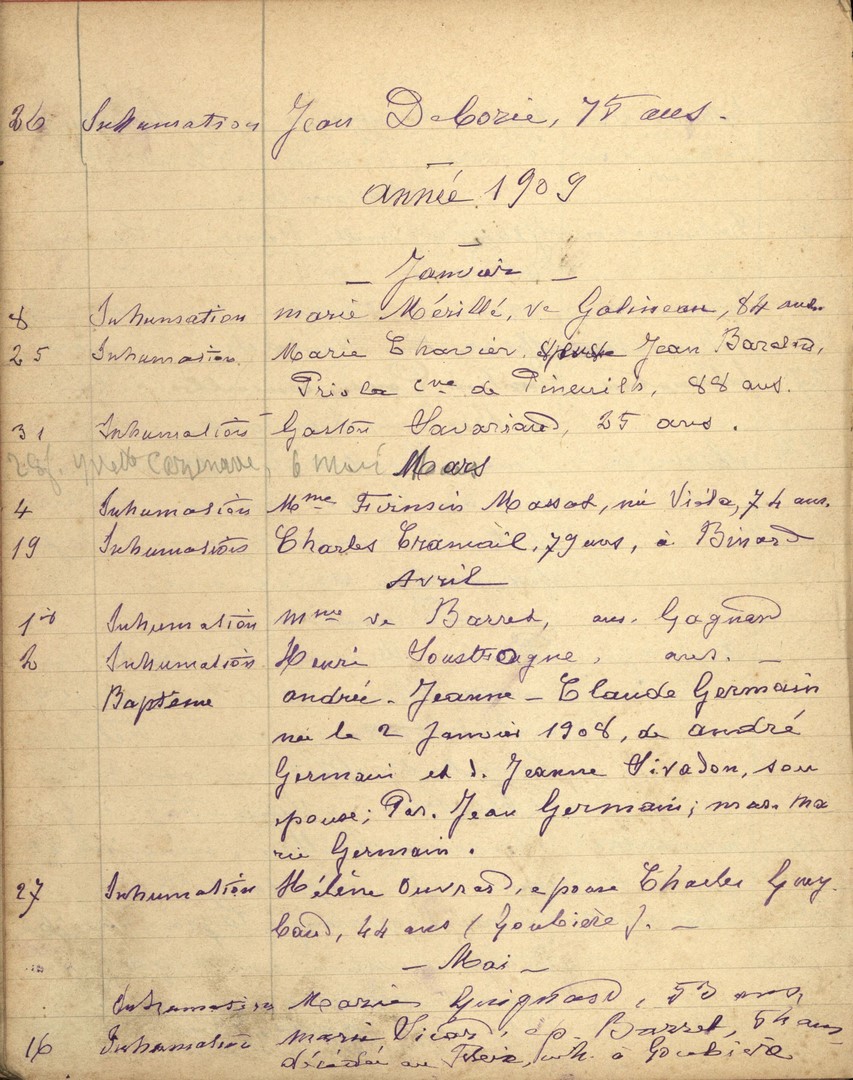 26 Inhumation Jean DeCorie, 75 ans.
année 1909
- Janvier -
8 Inhumation marie Mérillé, ve Galineau, 84 ans
25 Inhumation Marie Chavier, épouse Jean
cne de Pineuilh, 88 ans.
31 Inhumation Gaston Savariaud, 25 ans.
6 Mars
4 Inhumation Mme Firmin Massat, née 74 ans.
19 Inhumation Charles Tramail, 79 ans, à Binard
Avril
Inhumation Mme ve Barret, ans. Gagnard
2 Inhumation Henri ans. -
Baptême andrée - Jeanne - Claude Germain
née le 2 Janvier 1908, de andré
Germain et d. Jeanne Sivadon, son
épouse; Par. Jean Germain; mar. Ma
rie Germain.
27 Inhumation Hélène Ouvrard, epouse Charles Guey
baud, 44 ans (Goubière). -
- Mai -
Inhumation Marie Guignard, 53 ans,
16 Inhumation marie Sicard, ép. Barret, ans
décédée au inh. à Goubière